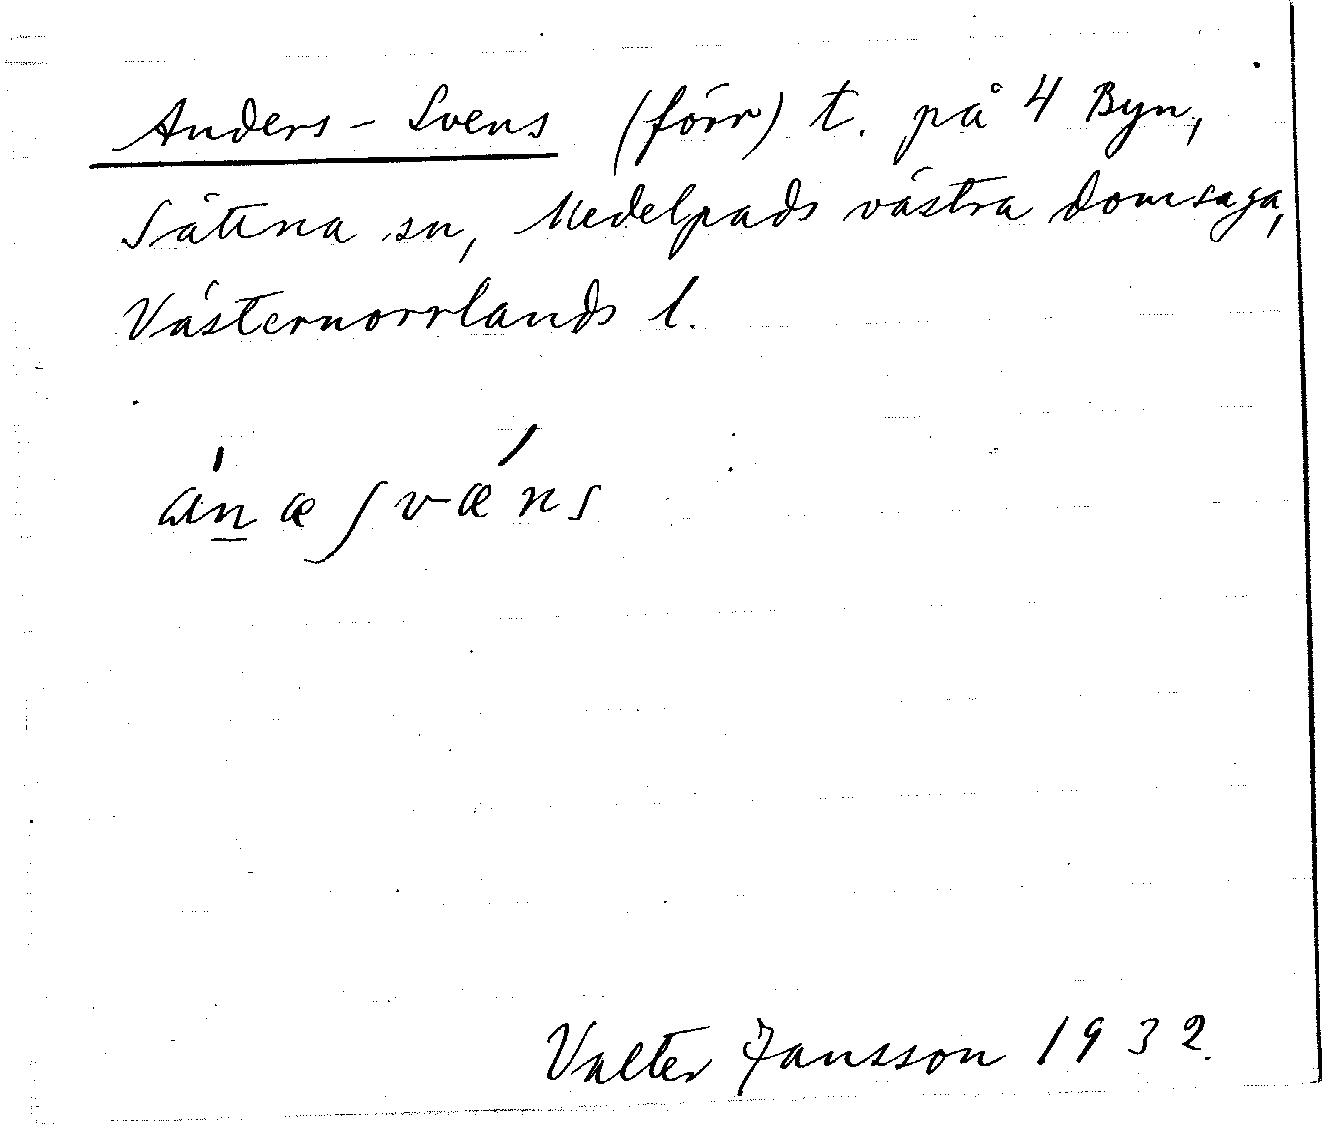 Anders-Svens (förr) t. på 4 Byn,
Sättna sn, Medelpads västra domsaga,
Västernorrlands l.
án̲æʃvǽns
Valter Jansson 1932.